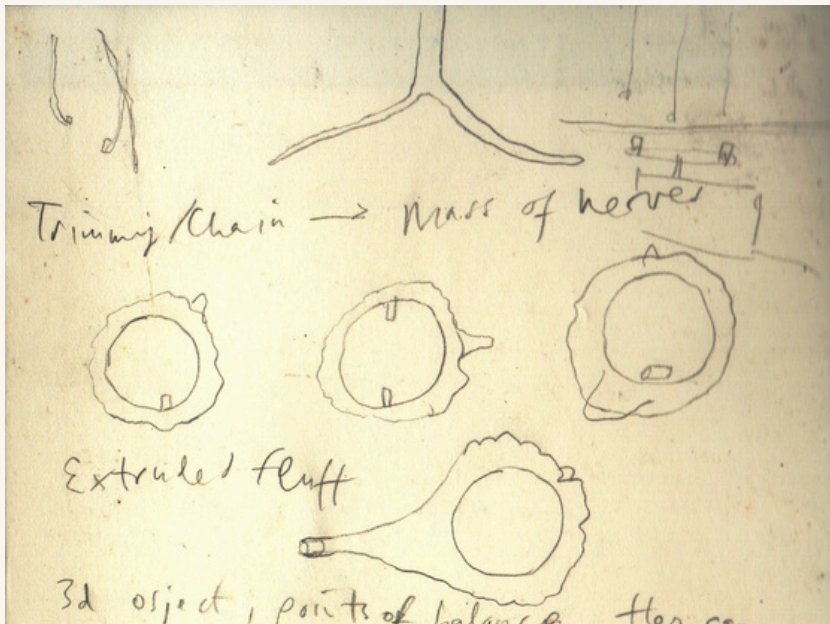 Trimming/Chain → Mass of nerves
Extruded fluff
3d object, points of balance